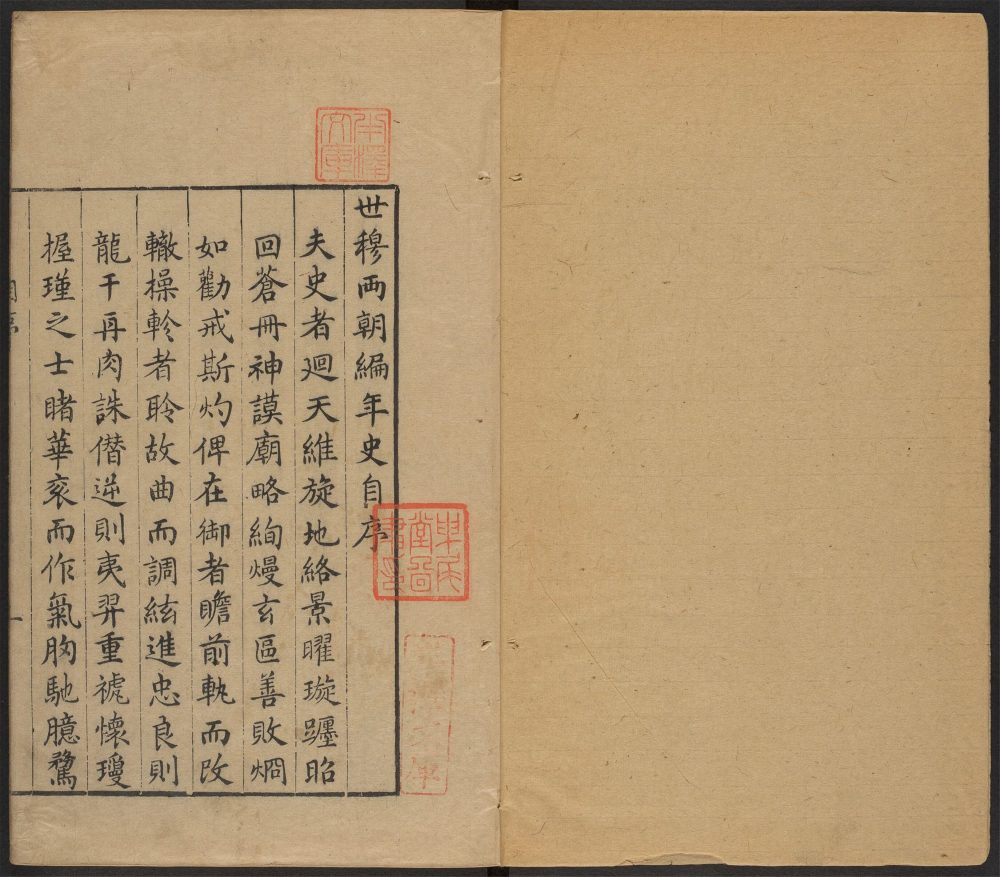 世穆兩朝編年史自序
夫史者迴天維旋地絡景曜璇躔昭
回蒼冊神謨廟略絢熳玄區善敗烱
如勸戒斯灼俾在御者瞻前軌而改
轍操軫者聆故曲而調絃進忠良則
龍干再肉誅僭逆則夷羿重褫懷瓊
握瑾之士睹華衮而作氣胸馳臆騖
一